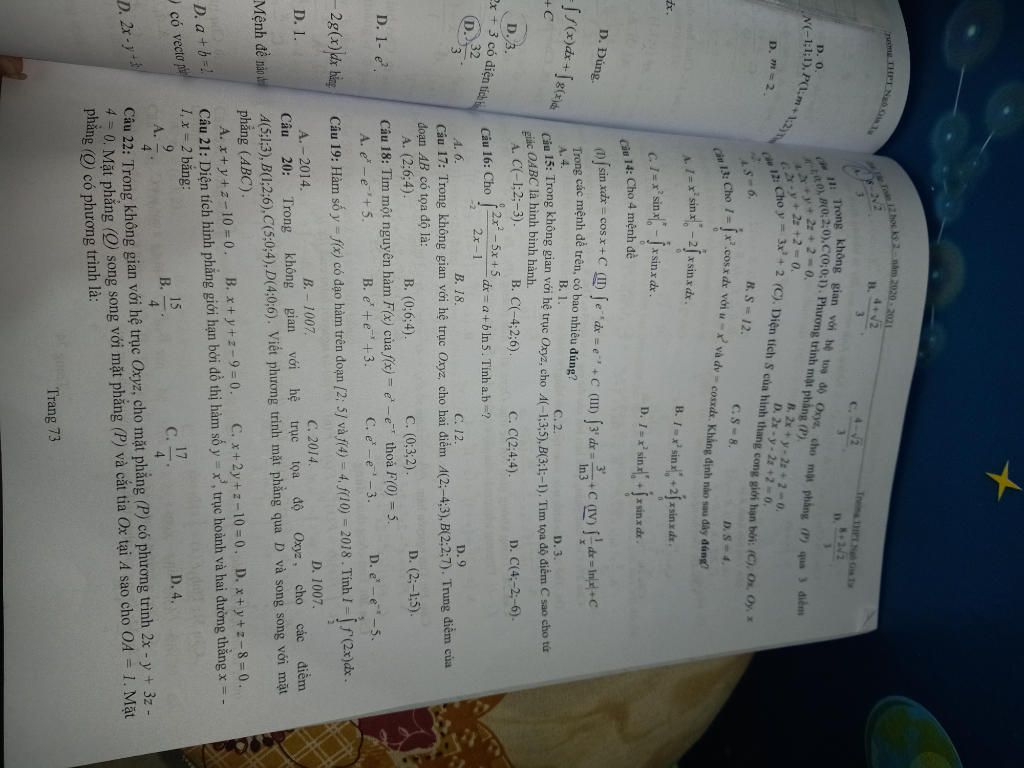 Trường THPT Ngô Gia Tự
D. 0.
N(−1;1;1), P(1;m−1;2).
D. m = 2.
D. Đúng.
∫f(x)dx + ∫g(x)dx
+ C
D. 3.
2x + 3 có diện tích
D. 32/3
D. 1 - e².
− 2g(x)]dx bằng
D. 1.
Mệnh đề nào
D. a + b = 1.
) có vectơ
Toán 12 học kỳ 2 – năm 2020 - 2021 Trường THPT Ngô Gia Tự
A. (8−2√2)/3. B. (4+√2)/3. C. (4−√2)/3. D. (8+2√2)/3
Câu 11: Trong không gian với hệ tọa độ Oxyz, cho mặt phẳng (P) qua 3 điểm
B(0;2;0), C(0;0;1). Phương trình mặt phẳng (P).
B. 2x + y - 2z + 2 = 0.
D. 2x - y - 2z + 2 = 0.
Câu 12: Cho y = 3x² + 2 (C). Diện tích S của hình thang cong giới hạn bởi: (C), Ox, Oy, x
A. S = 6. B. S = 12. C. S = 8. D. S = 4.
Câu 13: Cho I = ∫₀^π x² cos x dx với u = x² và dv = cosxdx. Khẳng định nào sau đây đúng?
A. I = x² sin x|₀^π − 2∫₀^π x sin x dx. B. I = x² sin x|₀^π + 2∫₀^π x sin x dx.
C. I = x² sin x|₀^π − ∫₀^π x sin x dx. D. I = x² sin x|₀^π + ∫₀^π x sin x dx.
Câu 14: Cho 4 mệnh đề
(I) ∫sin xdx = cos x + C (II) ∫e⁻ˣ dx = e⁻ˣ + C (III) ∫3ˣ dx = 3ˣ/ln3 + C (IV) ∫(1/x) dx = ln|x| + C
Trong các mệnh đề trên, có bao nhiêu đúng?
A. 4. B. 1. C. 2. D. 3.
Câu 15: Trong không gian với hệ trục Oxyz, cho A(−1;3;5), B(3;1;−1). Tìm tọa độ điểm C sao cho tứ
giác OABC là hình bình hành.
A. C(−1;2;−3). B. C(−4;2;6). C. C(2;4;4). D. C(4;−2;−6).
Câu 16: Cho ∫₋₂⁰ (2x² − 5x + 5)/(2x − 1) dx = a + b ln 5. Tính a.b =?
A. 6. B. 18. C. 12. D. 9
Câu 17: Trong không gian với hệ trục Oxyz, cho hai điểm A(2;−4;3), B(2;2;7). Trung điểm của
đoạn AB có tọa độ là:
A. (2;6;4). B. (0;6;4). C. (0;3;2). D. (2;−1;5).
Câu 18: Tìm một nguyên hàm F(x) của f(x) = eˣ − e⁻ˣ thoả F(0) = 5.
A. eˣ − e⁻ˣ + 5. B. eˣ + e⁻ˣ + 3. C. eˣ − e⁻ˣ − 3. D. eˣ − e⁻ˣ − 5.
Câu 19: Hàm số y = f(x) có đạo hàm trên đoạn [2; 5] và f(4) = 4, f(10) = 2018. Tính I = ∫₂⁵ f'(2x)dx.
A. − 2014. B. − 1007. C. 2014. D. 1007.
Câu 20: Trong không gian với hệ trục tọa độ Oxyz, cho các điểm
A(5;1;3), B(1;2;6), C(5;0;4), D(4;0;6). Viết phương trình mặt phẳng qua D và song song với mặt
phẳng (ABC).
A. x + y + z − 10 = 0. B. x + y + z − 9 = 0. C. x + 2y + z − 10 = 0. D. x + y + z − 8 = 0.
Câu 21: Diện tích hình phẳng giới hạn bởi đồ thị hàm số y = x³, trục hoành và hai đường thẳng x = -
1, x = 2 bằng:
A. 9/4. B. 15/4. C. 17/4. D. 4.
Câu 22: Trong không gian với hệ trục Oxyz, cho mặt phẳng (P) có phương trình 2x - y + 3z -
4 = 0. Mặt phẳng (Q) song song với mặt phẳng (P) và cắt tia Ox tại A sao cho OA = 1. Mặt
phẳng (Q) có phương trình là:
Trang 73